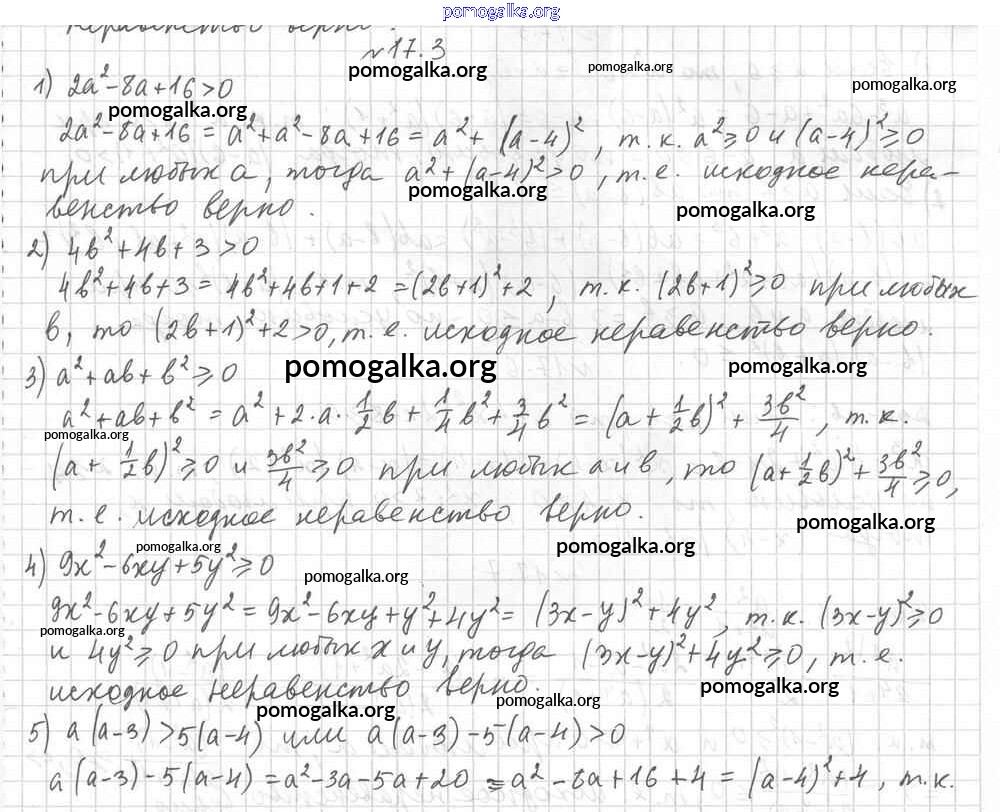 pomogalka.org
неравенство верно.
№17.3
pomogalka.org pomogalka.org
1) 2a²-8a+16>0 pomogalka.org
pomogalka.org
2a²-8a+16 = a²+a²-8a+16 = a²+(a-4)², т.к. a²≥0 и (a-4)²≥0
при любых a, тогда a²+(a-4)²>0, т.е. исходное нера-
pomogalka.org
венство верно. pomogalka.org
2) 4b²+4b+3>0
4b²+4b+3 = 4b²+4b+1+2 = (2b+1)²+2, т.к. (2b+1)²≥0 при любых
b, то (2b+1)²+2>0, т.е. исходное неравенство верно.
pomogalka.org pomogalka.org
3) a²+ab+b²≥0
a²+ab+b² = a²+2·a·1/2b+1/4b²+3/4b² = (a+1/2b)²+3b²/4, т.к.
pomogalka.org
(a+1/2b)²≥0 и 3b²/4≥0 при любых a и b, то (a+1/2b)²+3b²/4≥0,
т.е. исходное неравенство верно.
pomogalka.org
pomogalka.org pomogalka.org
4) 9x²-6xy+5y²≥0
pomogalka.org
9x²-6xy+5y² = 9x²-6xy+y²+4y² = (3x-y)²+4y², т.к. (3x-y)²≥0
pomogalka.org
и 4y²≥0 при любых x и y, тогда (3x-y)²+4y²≥0, т.е.
исходное неравенство верно. pomogalka.org
pomogalka.org
pomogalka.org
5) a(a-3)>5(a-4) или a(a-3)-5(a-4)>0
a(a-3)-5(a-4) = a²-3a-5a+20 = a²-8a+16+4 = (a-4)²+4, т.к.